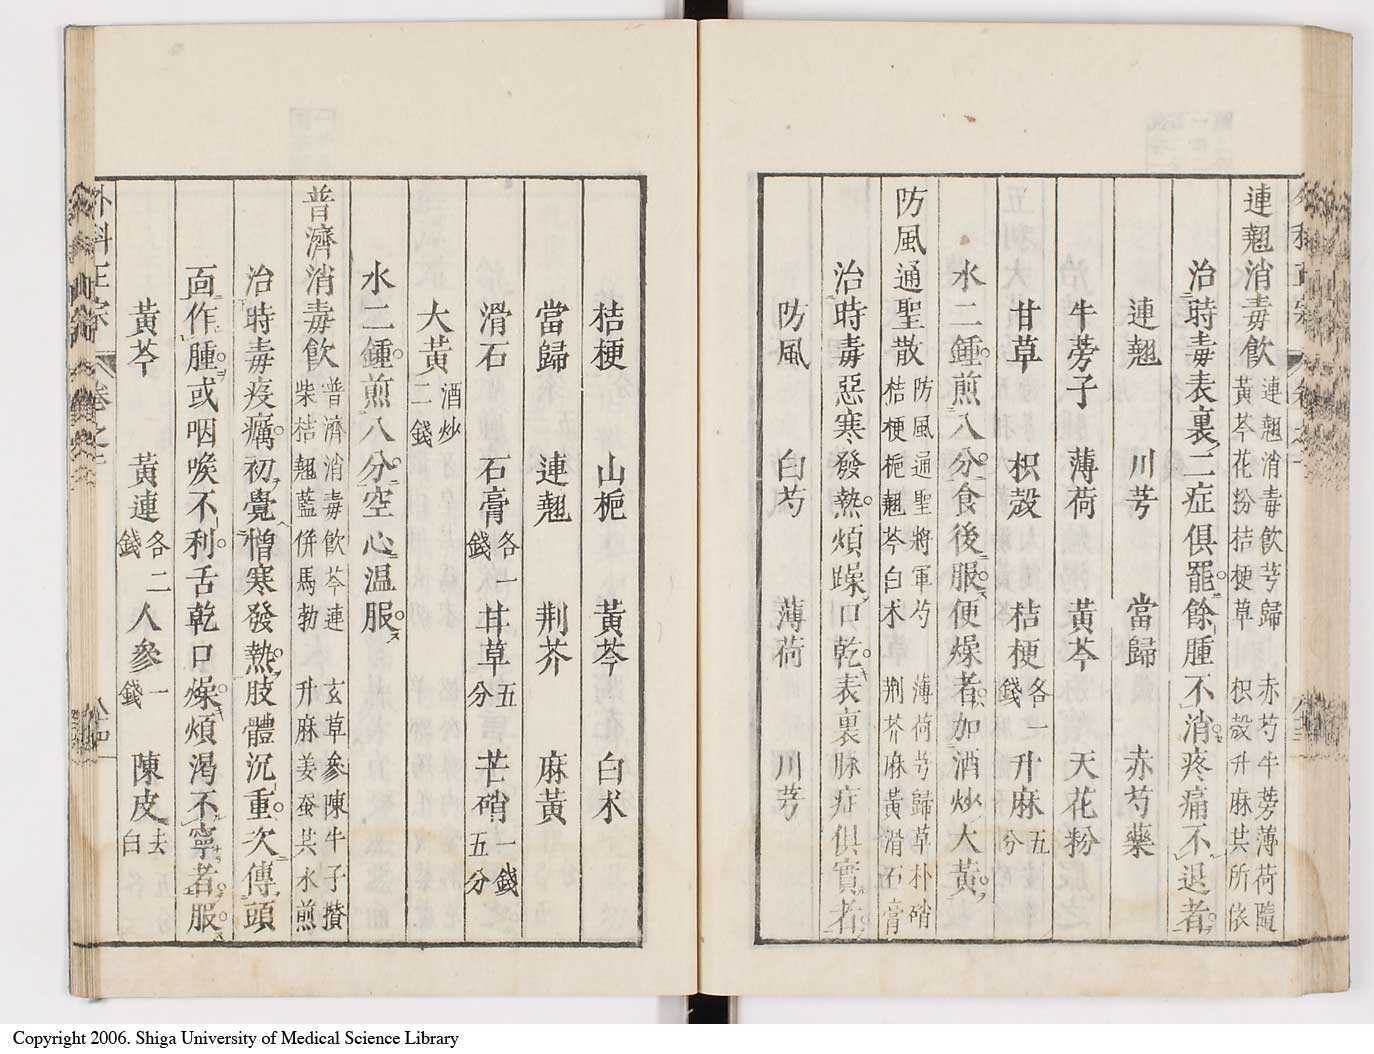 連翹消毒飲 連翹消毒飲芎歸 赤芍牛蒡薄荷隨 黃芩花粉桔梗草 枳殼升麻共所依
治時毒表裏二症俱罷餘腫不消疼痛不退者
連翹 川芎 當歸 赤芍藥
牛蒡子 薄荷 黃芩 天花粉
甘草 枳殼 桔梗各一錢 升麻五分
水二鍾煎八分食後服便燥者加酒炒大黃
防風通聖散 防風通聖將軍芍 薄荷芎歸草朴硝 桔梗梔翹芩白朮 荆芥麻黃滑石膏
治時毒惡寒發熱煩躁口乾表裏脉症俱實者
防風 白芍 薄荷 川芎
桔梗 山梔 黃芩 白朮
當歸 連翹 荆芥 麻黃
滑石 石膏各一錢 甘草五分 芒硝一錢五分
大黃酒炒二錢
水二鍾煎八分空心温服
普濟消毒飲 普濟消毒飲芩連 玄草參陳牛子攅 柴桔翹藍併馬勃 升麻姜蚕共水煎
治時毒疫癘初覺憎寒發熱肢體沉重次傳頭
面作腫或咽喉不利舌乾口燥煩渴不寧者服
黃芩 黃連各二錢 人參一錢 陳皮去白
外科正宗 卷之二
Copyright 2006. Shiga University of Medical Science Library